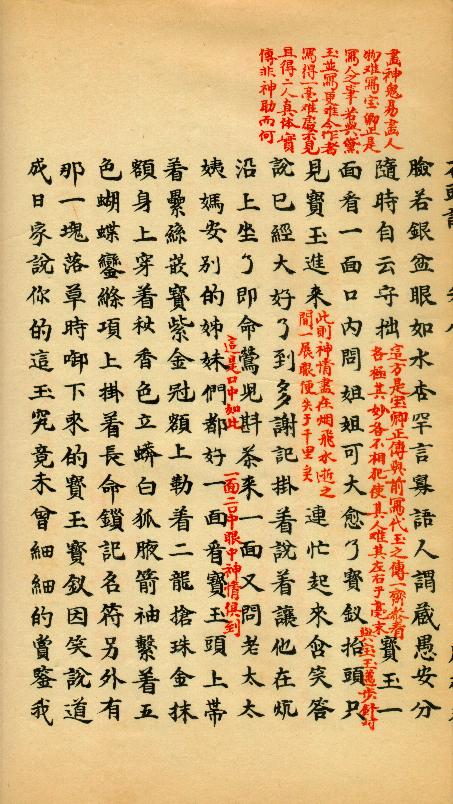 畫神鬼易畫人
物难寫宝卿正是
寫人之筆若與黛
玉並寫更难今作者
寫得一毫难處不見
且得二人真体實
傳非神助而何
臉若銀盆眼如水杏罕言寡語人謂藏愚安分
隨時自云守拙
這方是宝卿正傳與前寫代玉之傳一齊参看
各極其妙各不相犯使其人难其左右于毫末
寶玉一
與宝玉邁步針対
面看一面口内問姐姐可大愈了寳釵抬頭只
見寳玉進来
此則神情盡在烟飛水逝之
間一展眼便失于千里矣
連忙起来含笑答
說已經大好了到多謝記掛着說着讓他在炕
沿上坐了即命鶯兒斟茶来一面又問老太太
姨媽安别的姊妹們都好
這是口中如此
一面看寳玉頭上帶
一面二口中眼中神情俱到
着纍絲嵌寳紫金冠額上勒着二龍搶珠金抹
額身上穿着秋香色立蟒白狐腋箭袖繫着五
色蝴蝶鸞縧項上掛着長命鎖記名符另外有
那一塊落草時啣下来的寶玉寳釵因笑說道
成日家說你的這玉究竟未曾細細的賞鑒我